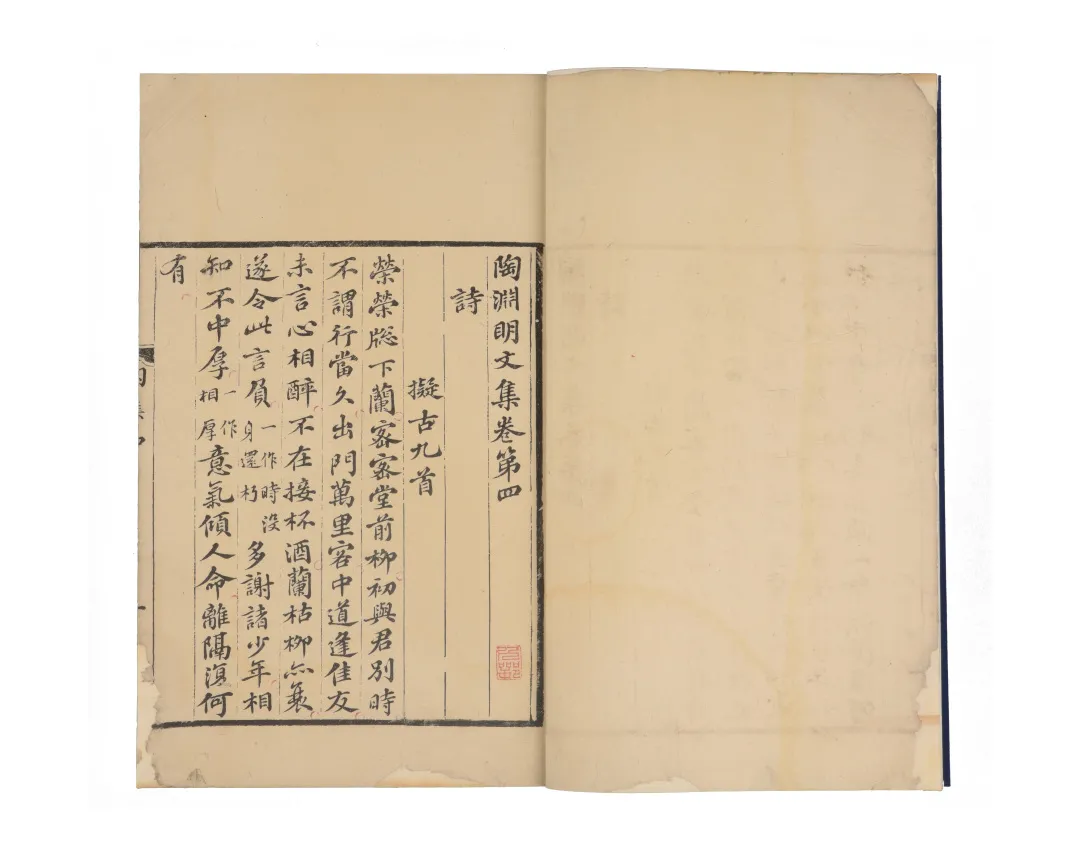 陶淵明文集卷第四
詩
擬古九首
榮榮牎下蘭宻宻堂前柳初與君別時
不謂行當久出門萬里客中道逢佳友
未言心相醉不在接杯酒蘭枯柳亦衰
遂令此言負一作時没身還朽多謝諸少年相
知不中厚一作相厚意氣傾人命離隔復何
有